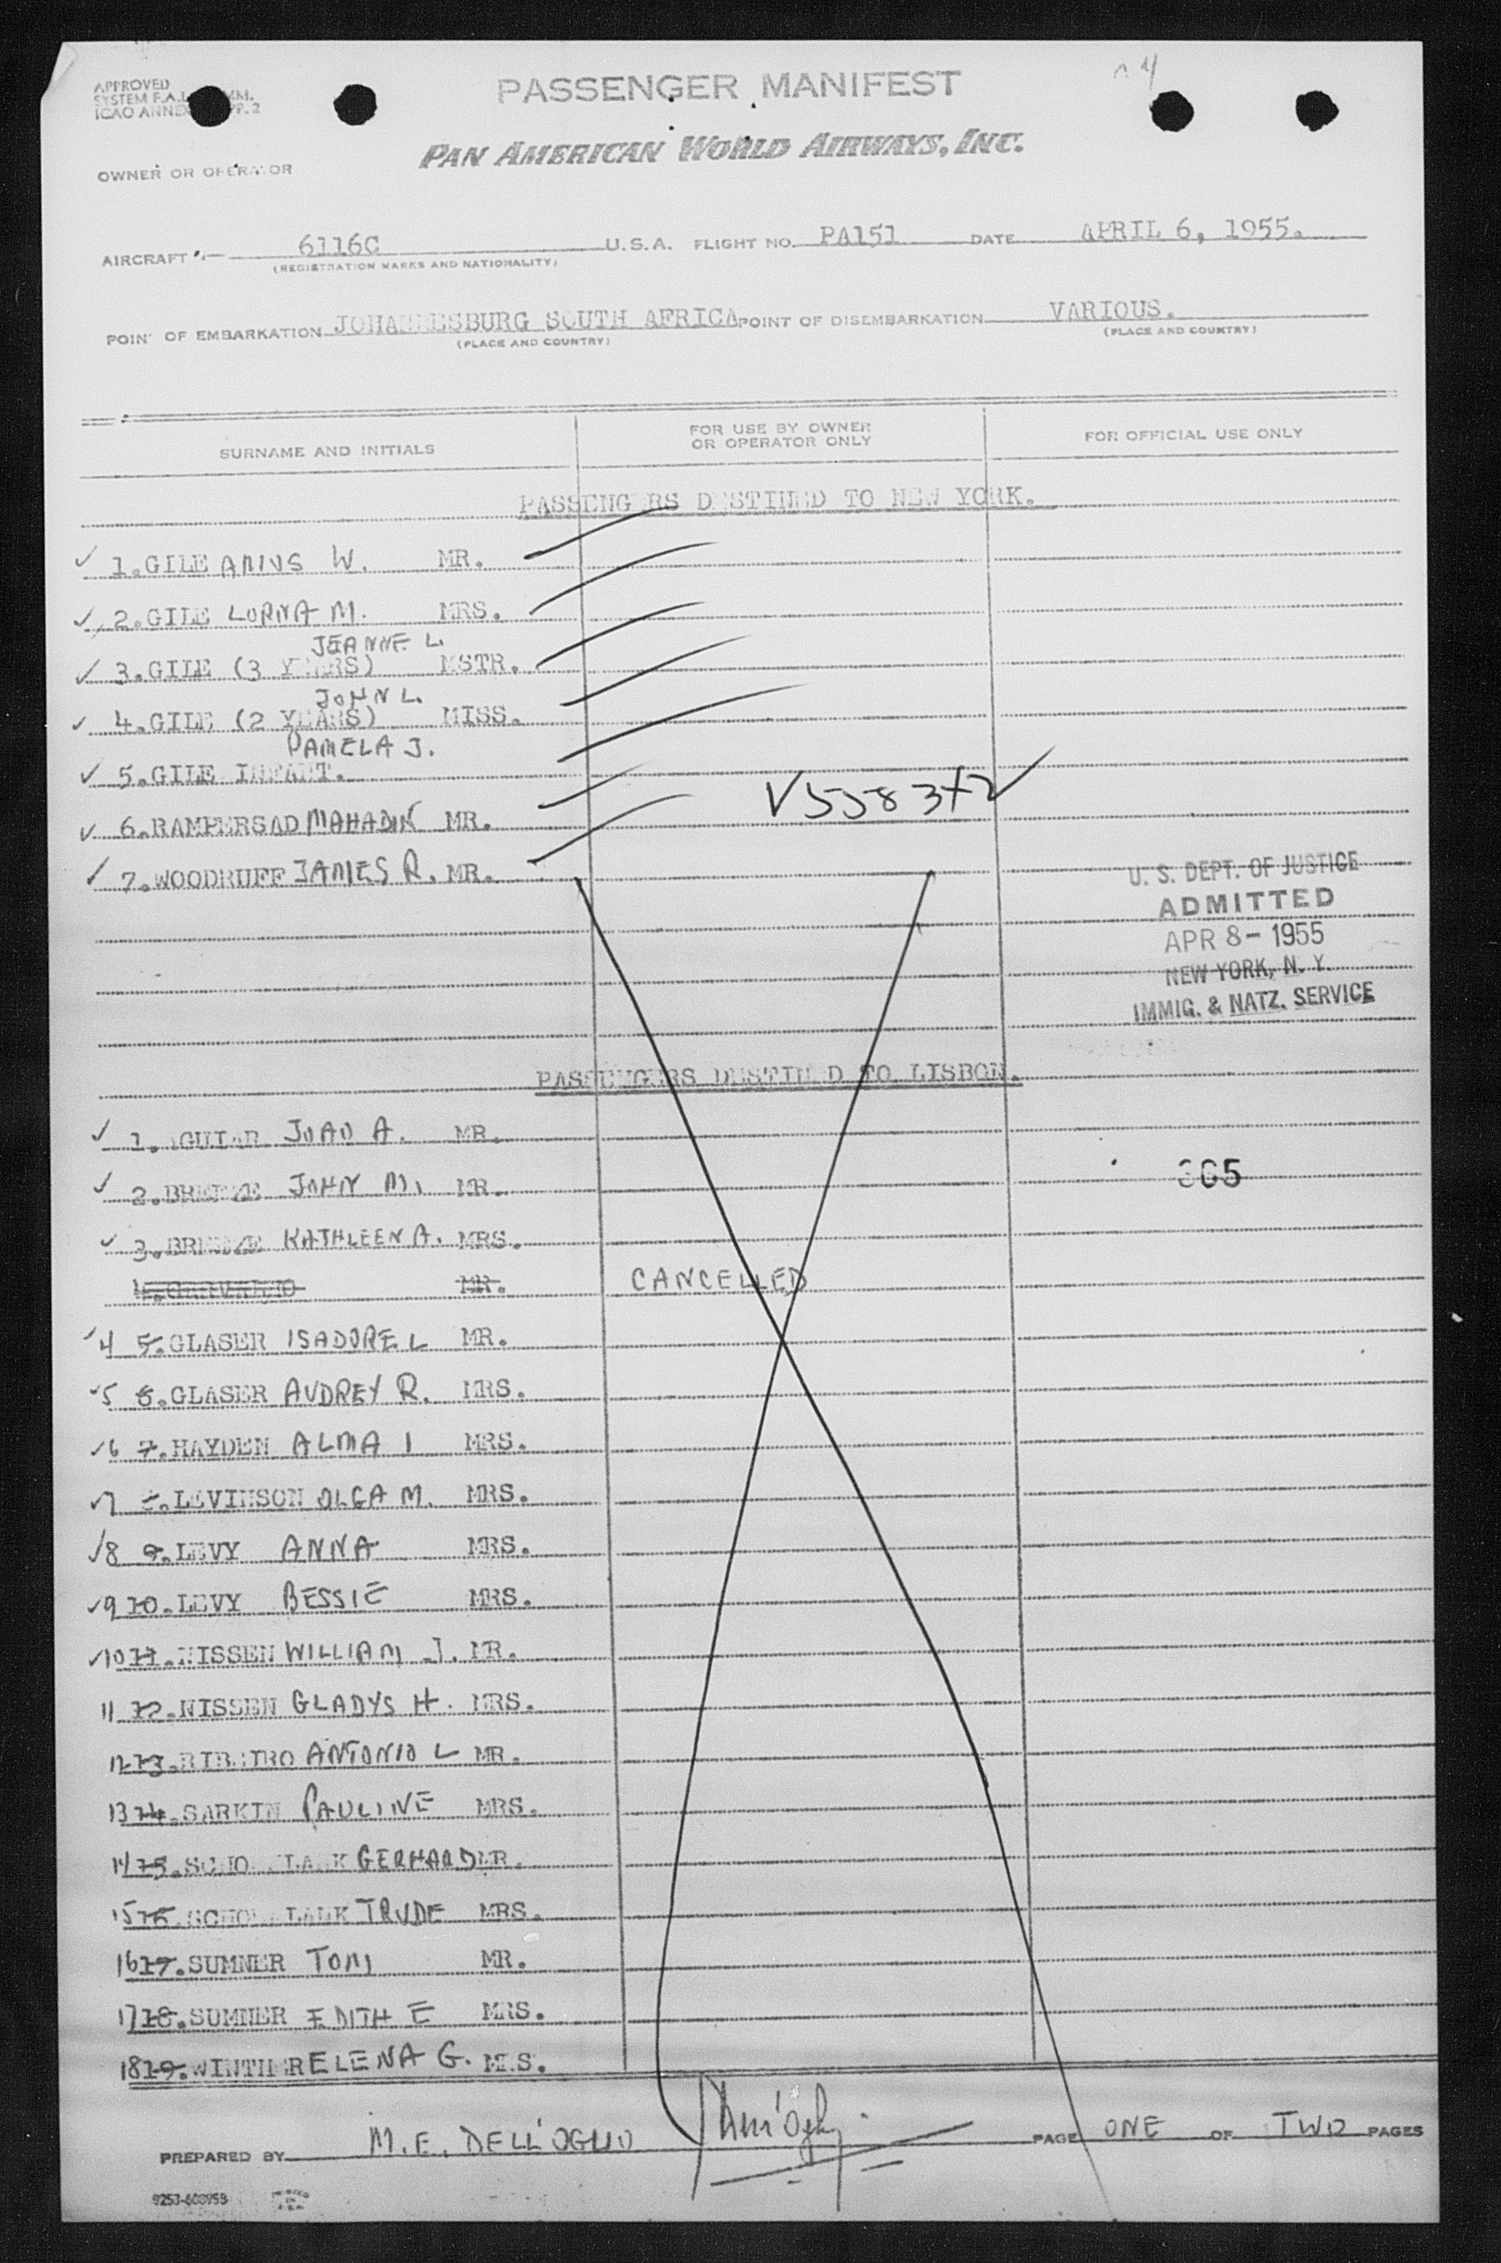 APPROVED
SYSTEM F.A.L.
ICAO ANNEX
PASSENGER MANIFEST
PAN AMERICAN WORLD AIRWAYS, INC.
OWNER OR OPERATOR
AIRCRAFT 6116C U.S.A. FLIGHT NO. PA151 DATE APRIL 6, 1955.
(REGISTRATION MARKS AND NATIONALITY)
POINT OF EMBARKATION JOHANNESBURG SOUTH AFRICA POINT OF DISEMBARKATION VARIOUS.
(PLACE AND COUNTRY) (PLACE AND COUNTRY)
SURNAME AND INITIALS FOR USE BY OWNER OR OPERATOR ONLY FOR OFFICIAL USE ONLY
PASSENGERS DESTINED TO NEW YORK.
1. GILE W. MR.
2. GILE LORNA M. MRS.
JEANNE L.
3. GILE (3 YEARS) MSTR.
JOHN L.
4. GILE (2 YEARS) MISS.
PAMELA J.
5. GILE INFANT.
6. RAMPERSAD MAHADIN MR.
7. WOODRUFF JAMES R. MR.
U. S. DEPT. OF JUSTICE
ADMITTED
APR 8 - 1955
NEW YORK, N. Y.
IMMIG. & NATZ. SERVICE
PASSENGERS DESTINED TO LISBON.
1. AGUIAR JOAO A. MR.
2. BREEZE JOHN M. MR.
3. BREEZE KATHLEEN A. MRS.
4. MR. CANCELLED
4 5. GLASER ISADORE L MR.
5 6. GLASER AUDREY R. MRS.
6 7. HAYDEN ALMA I MRS.
7 8. LEVINSON OLGA M. MRS.
8 9. LEVY ANNA MRS.
9 10. LEVY BESSIE MRS.
10 11. NISSEN WILLIAM J. MR.
11 12. NISSEN GLADYS H. MRS.
12 13. RIBEIRO ANTONIO L MR.
13 14. SARKIN PAULINE MRS.
14 15. GERHARD MR.
15 16. TRUDE MRS.
16 17. SUMNER TOM MR.
17 18. SUMNER EDITH E MRS.
18 19. WINTHER ELENA G. MRS.
PREPARED BY M.E. DELL'OGLIO PAGE ONE OF TWO PAGES